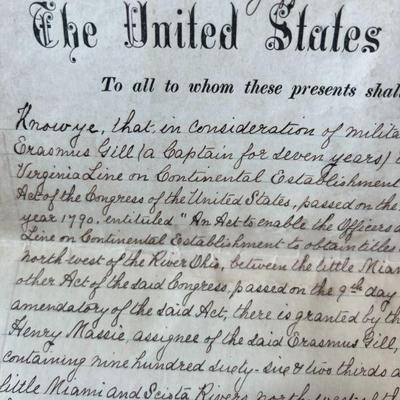 The United States
To all to whom these presents shal
Know ye, that in consideration of milita
Erasmus Gill (a Captain for seven years)
Virginia Line on Continental Establishment
Act of the Congress of the United States, passed on the
year 1790. entituled "An Act to enable the Officers a
Line on Continental Establishment to obtain titles
north west of the River Ohio, between the little Miam
other Act of the said Congress, passed on the 9th day
amendatory of the said Act, there is granted by th
Henry Massie, assignee of the said Erasmus Gill,
containing nine hundred sixty-six & two thirds a
little Miami and Sciota Rivers, north west of th